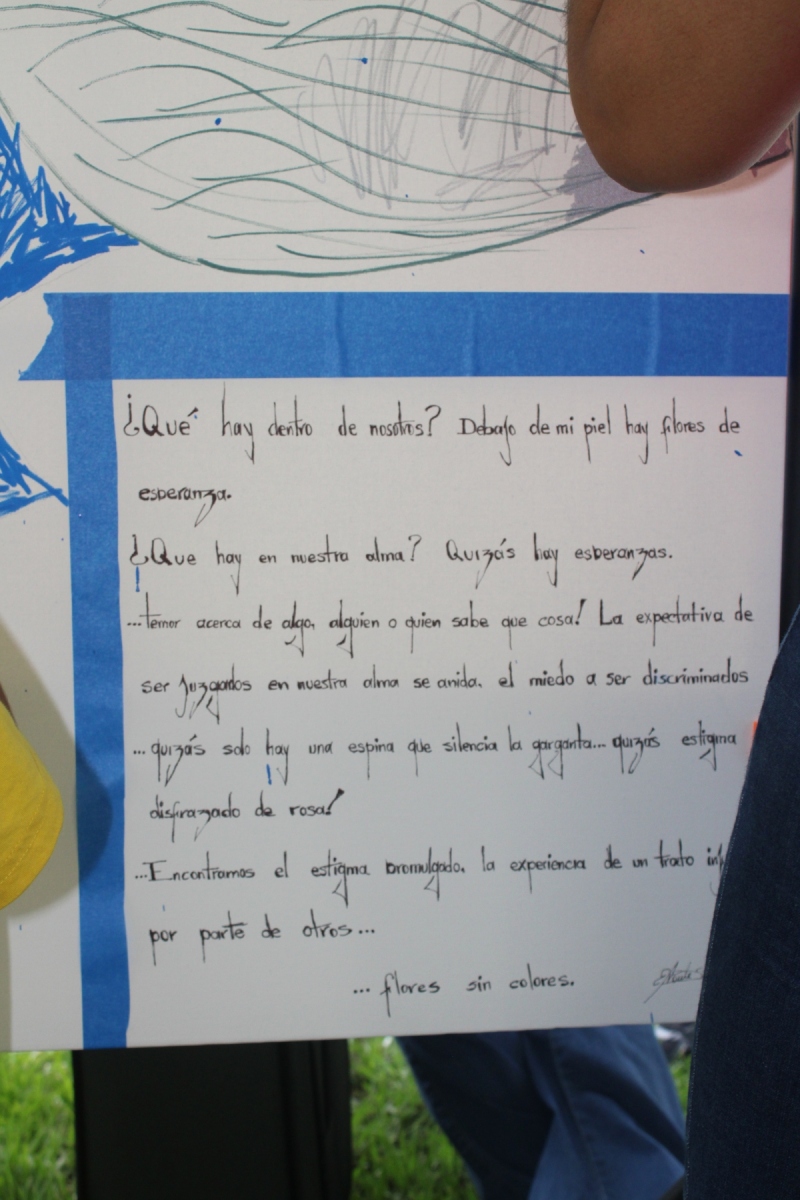 ¿Qué hay dentro de nosotros? Debajo de mi piel hay flores de
esperanza.
¿Que hay en nuestra alma? Quizás hay esperanzas.
...temor acerca de algo, alguien o quien sabe que cosa! La expectativa de
ser juzgados en nuestra alma se anida, el miedo a ser discriminados
...quizás solo hay una espina que silencia la garganta... quizás estigma
disfrazado de rosa!
...Encontramos el estigma promulgado, la experiencia de un trato
por parte de otros...
... flores sin colores.